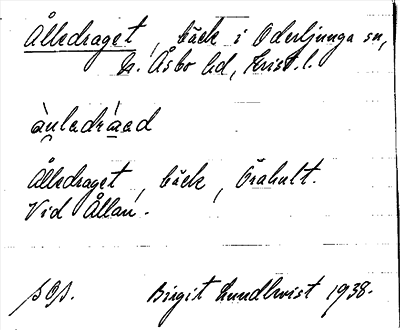 Ålledraget, bäck i Oderljunga sn,
N. Åsbo hd, Krist. l.
àuladráad
Ålledraget, bäck, Örahult.
Vid Ållan.
Birgit Lundkvist 1938.